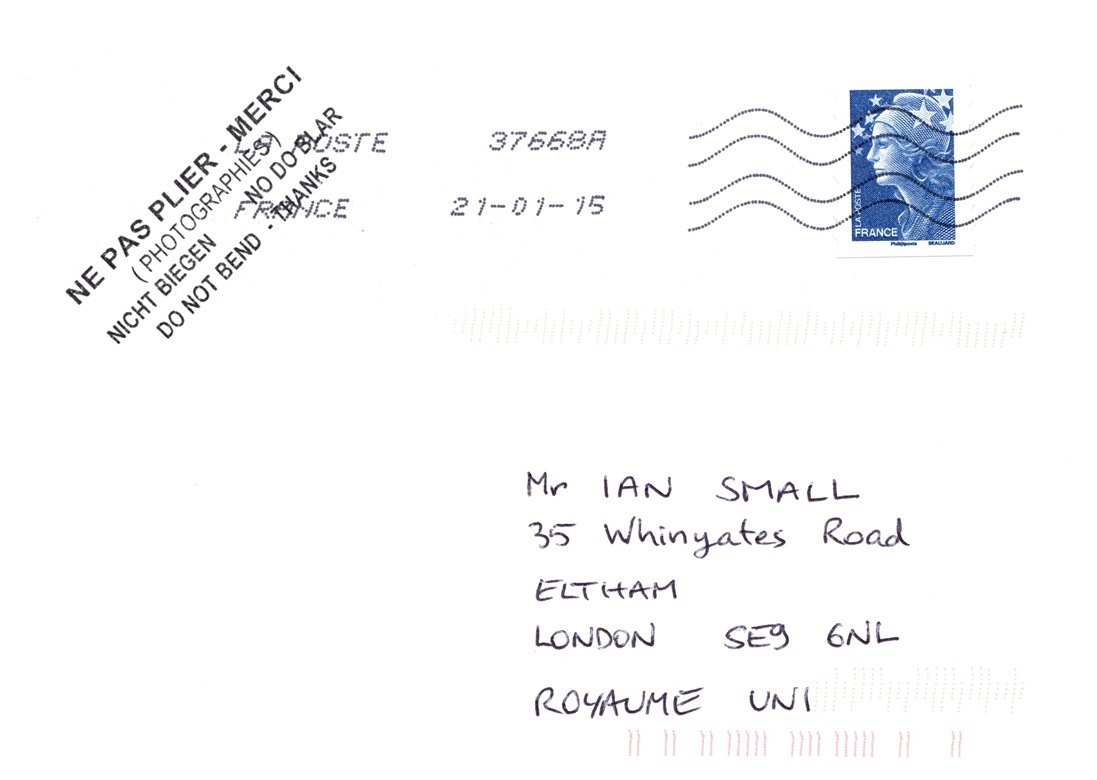 NE PAS PLIER - MERCI
(PHOTOGRAPHIES)
NICHT BIEGEN NO DO BLAR
DO NOT BEND - THANKS
LA POSTE 37668A
FRANCE 21-01-15
LA POSTE
FRANCE
Phil@poste BEAUJARD
Mr IAN SMALL
35 Whinyates Road
ELTHAM
LONDON SE9 6NL
ROYAUME UNI